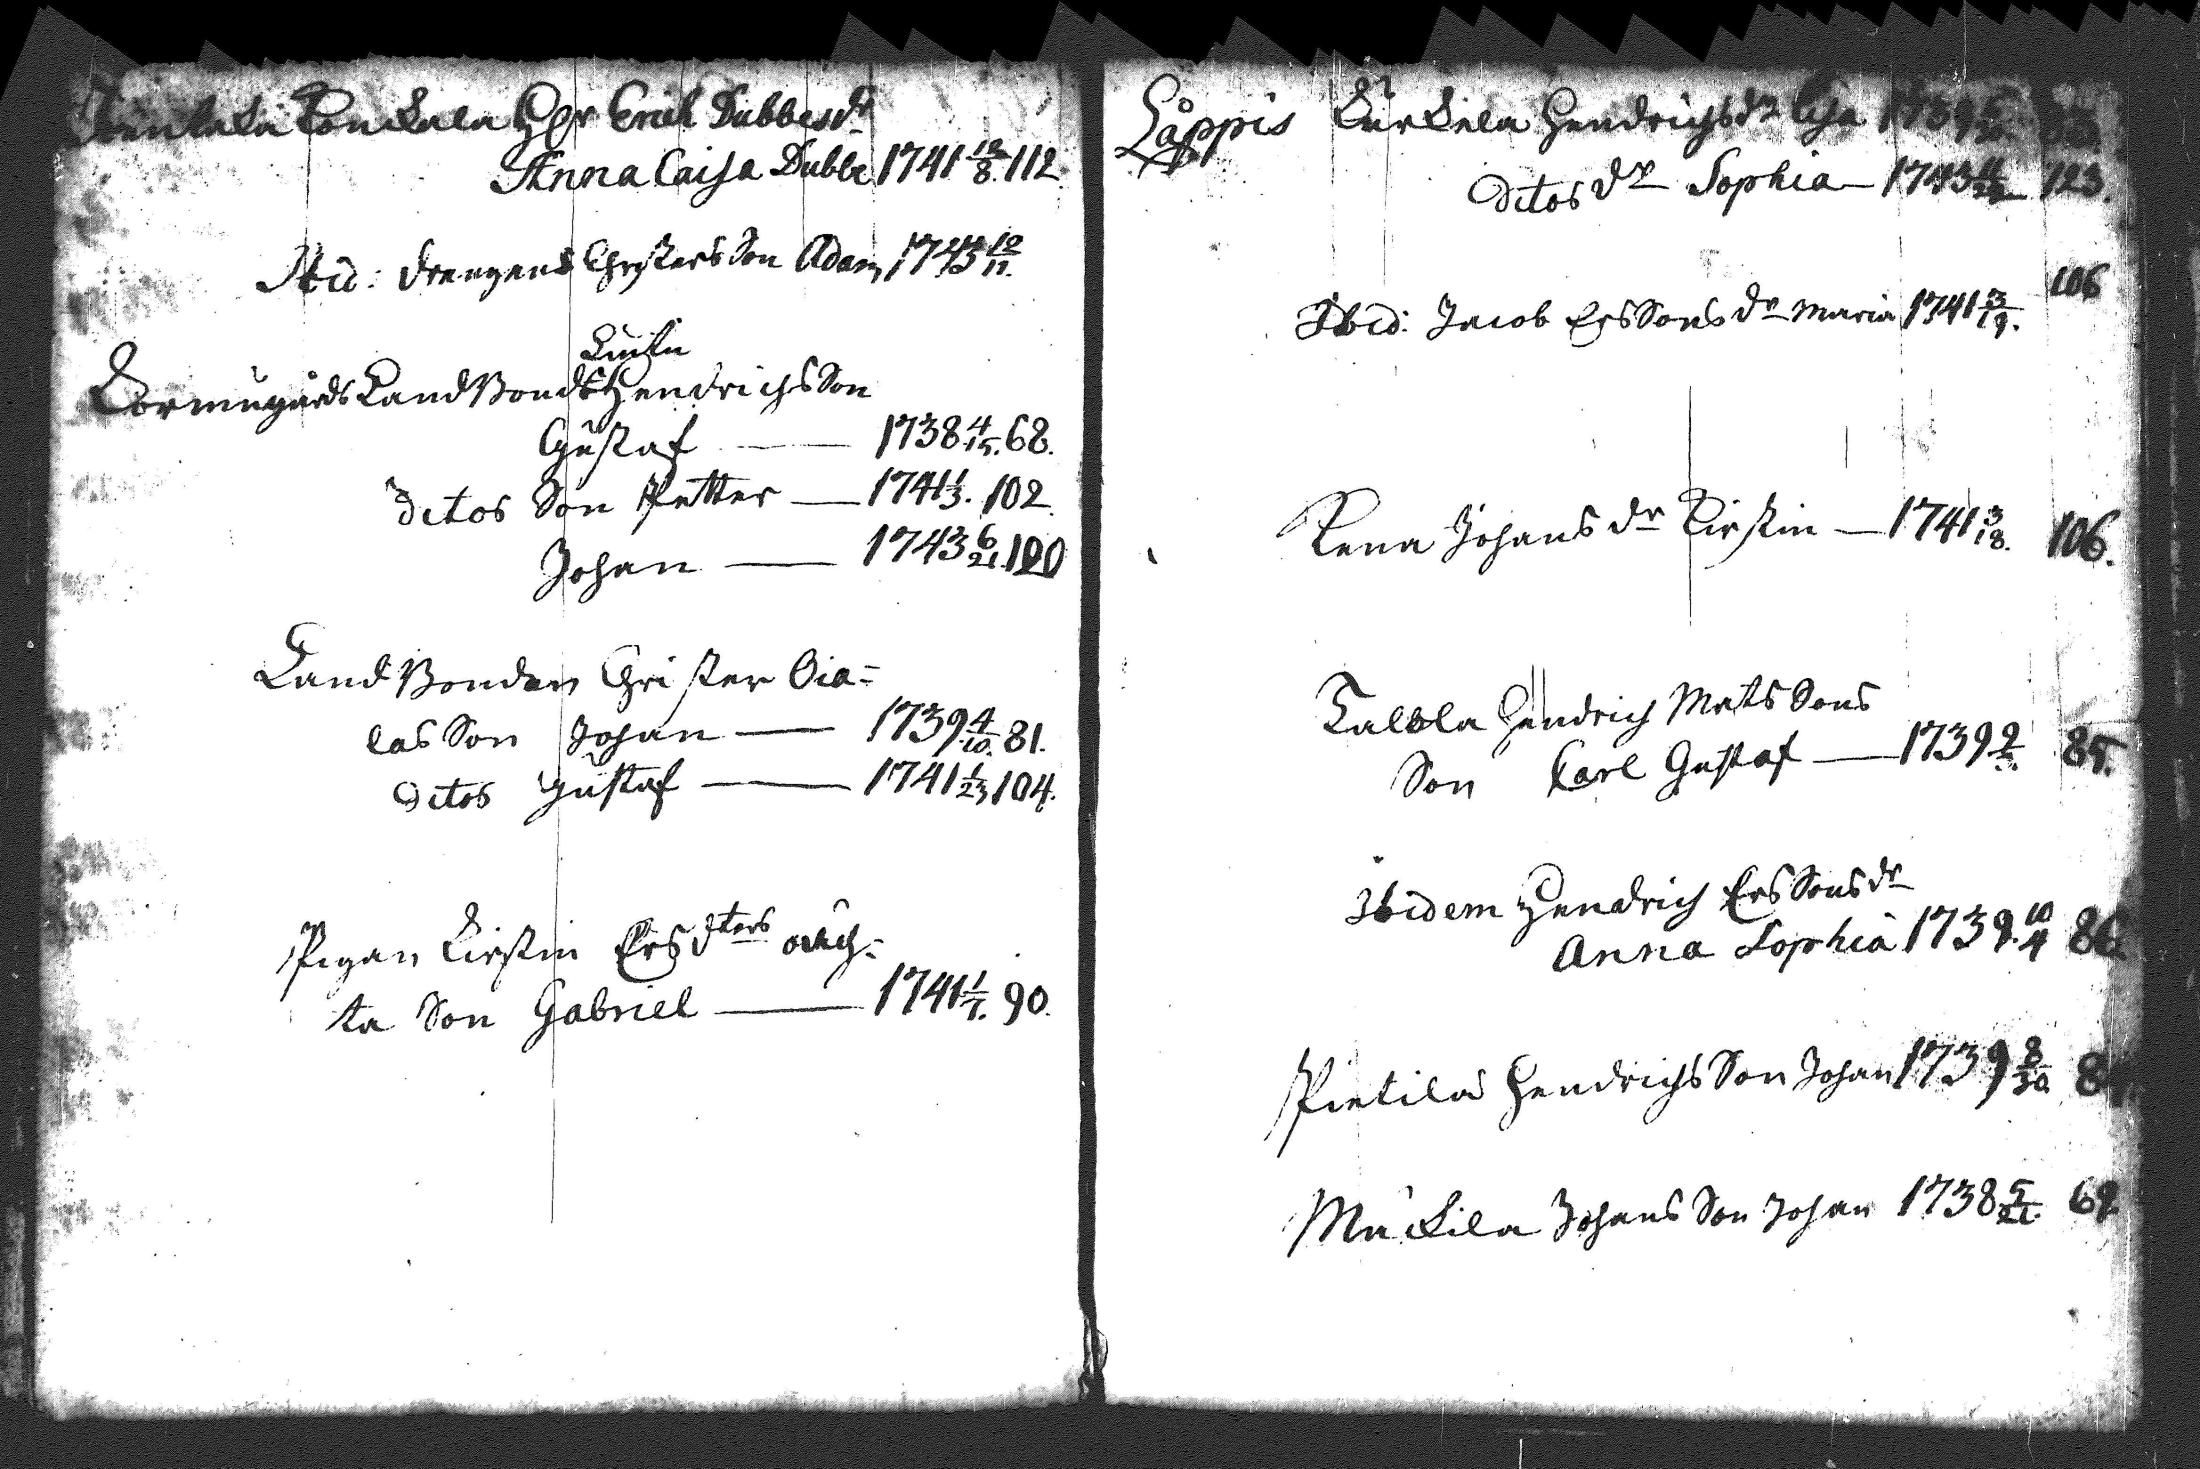 Hr Erich Dubbes dr
Anna Caisa Dubbe 1741 12/8. 112.
Ibid: drengens Christers Son Adam 1743 12/11.
Land Bonds Hendrichs Son
Gustaf — 1738 4/15. 68.
ditos Son Petter — 1741 1/3. 102.
Johan — 1743 6/21. 120
Land Bonden Christer Oia=
las Son Johan — 1739. 4/10. 81.
ditos Gustaf — 1741 1/23 104.
Pigan Kirstin Ers dters oäch=
ta Son Gabriel — 1741 1/7. 90.
Låppis Kurkela Hendrichs dr Lisa 1739
ditos dr Sophia — 1743 123.
106
Ibid: Jacob Ers Sons dr Maria 1741 3/19.
Rena Johans dr Kirstin — 1741 3/18. 106.
Hendrich Mats Sons
Son Carl Gustaf — 1739 85.
Ibidem Hendrich Ers Sons dr
Anna Sophia 1739. 10/4 86
Pietilä Hendrichs Son Johan 1739 8/30
Mickila Johans Son Johan 1738 5/21. 69